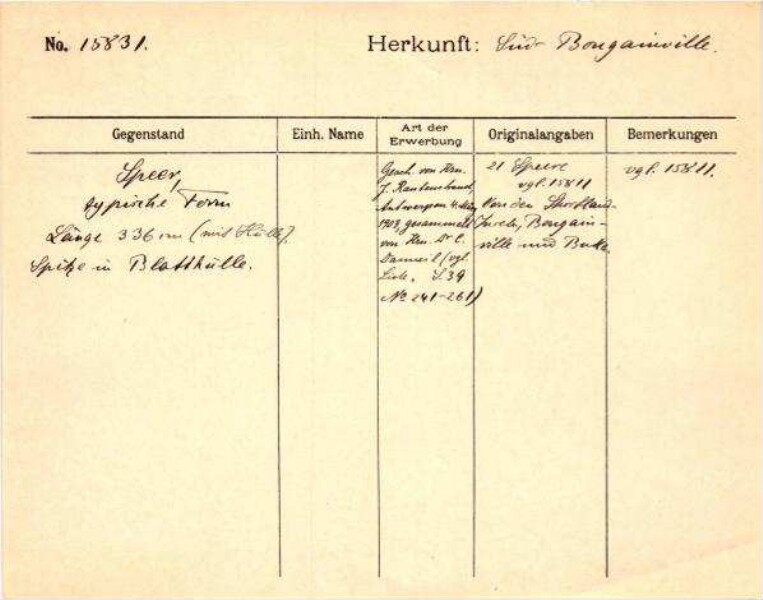 No. 15831.
Herkunft: Süd Bougainville.
Gegenstand
Einh. Name
Art der
Erwerbung
Originalangaben
Bemerkungen
Speer,
typische Form
Länge 336 cm (mit Hülle).
Spitze in Blatthülle.
Gesch. von Hrn.
J. Rautenstrauch,
Antwerpen 4. März
1909, gesammelt
von Hrn. Dr C.
Danneil (vgl.
Liste, S. 39
No 241-261)
21 Speere
vgl. 15811
Von den Shortland-
Inseln, Bougain-
ville und Buka.
vgl. 15811.